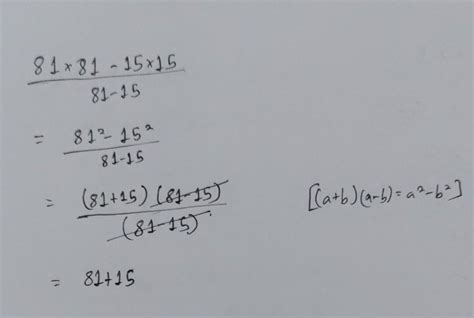 81 × 81 - 15 × 15
81-15
= 81² - 15²
81-15
= (81+15) (81-15) [(a+b)(a-b) = a²-b²]
(81-15)
= 81+15